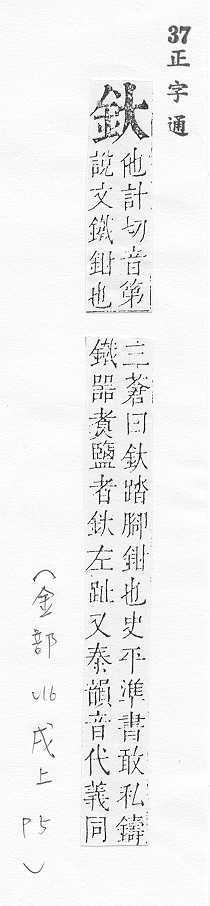 37正字通
釱
他計切音第
說文鐵鉗也
三蒼曰釱踏腳鉗也史平準書敢私鑄
鐵器煑鹽者釱左趾又泰韻音代義同
(金部 U16 戌上 P5)